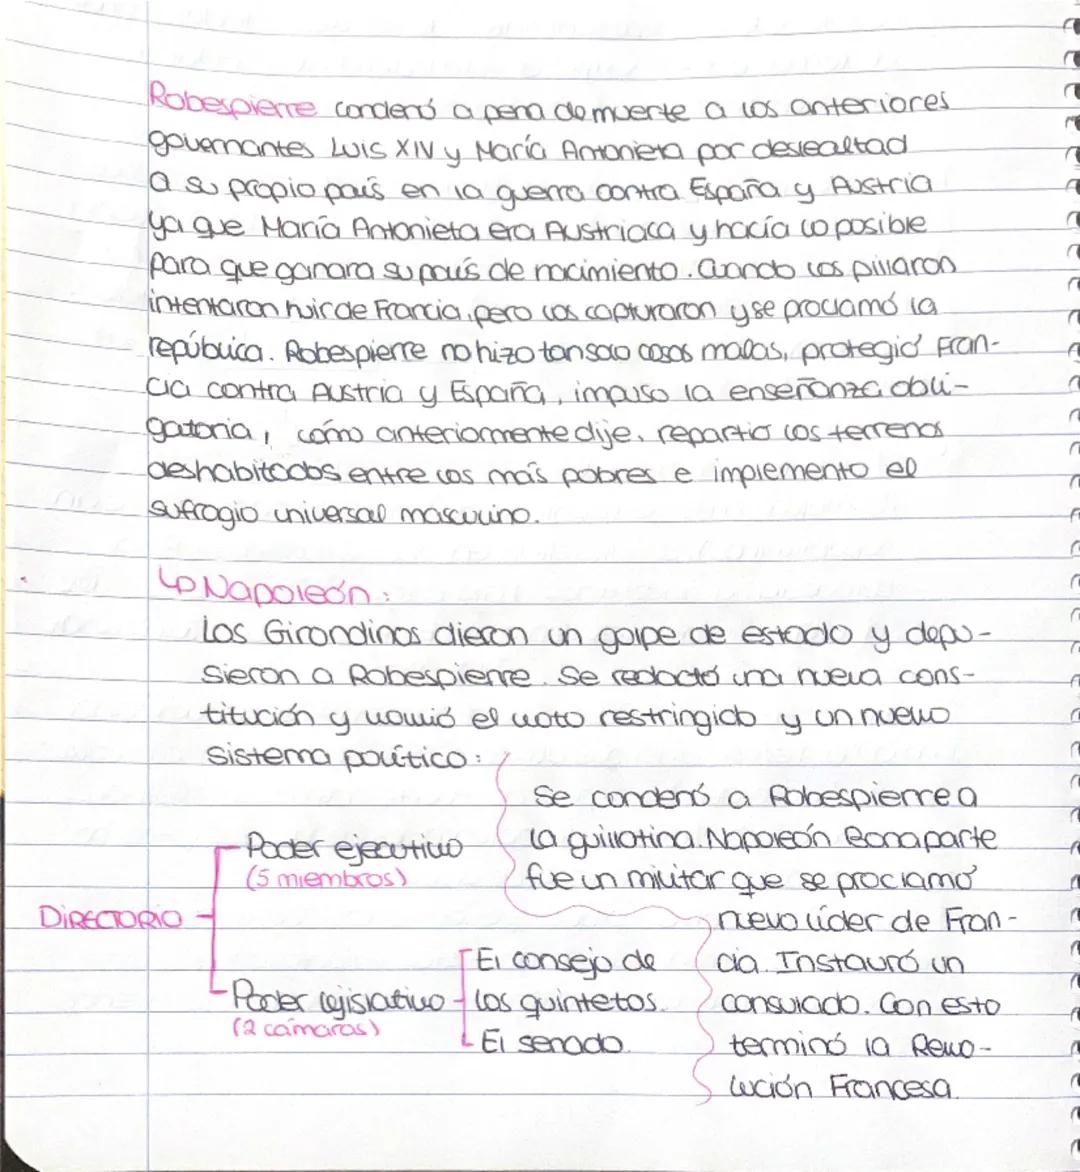 Robespierre condenó a pena de muerte a los anteriores
governantes Luis XIV y María Antonieta por deslealtad
a su propio país en la guerra contra España y Austria
ya que María Antonieta era Austriaca y hacía lo posible
para que ganara su país de nacimiento. Cuando los pillaron
intentaron huir de Francia, pero los capturaron y se proclamó la
república. Robespierre no hizo tan solo cosas malas, protegió Fran-
cia contra Austria y España, impuso la enseñanza obli-
gatoria, cómo anteriormente dije, repartio los terrenos
deshabitados entre los más pobres e implemento el
sufragio universal masculino.
↳ Napoleón:
Los Girondinos dieron un golpe de estado y depu-
sieron a Robespierre. Se redactó una nueva cons-
titución y volvió el voto restringido y un nuevo
sistema político:
Se condenó a Robespierre a
la guillotina. Napoleón Bonaparte
fue un militar que se proclamó
nuevo líder de Fran-
cia. Instauró un
consulado. Con esto
terminó la Revo-
lución Francesa.
DIRECTORIO
Poder ejecutivo
(5 miembros)
Poder legislativo
(2 cámaras)
El consejo de
los quintetos.
El senado.